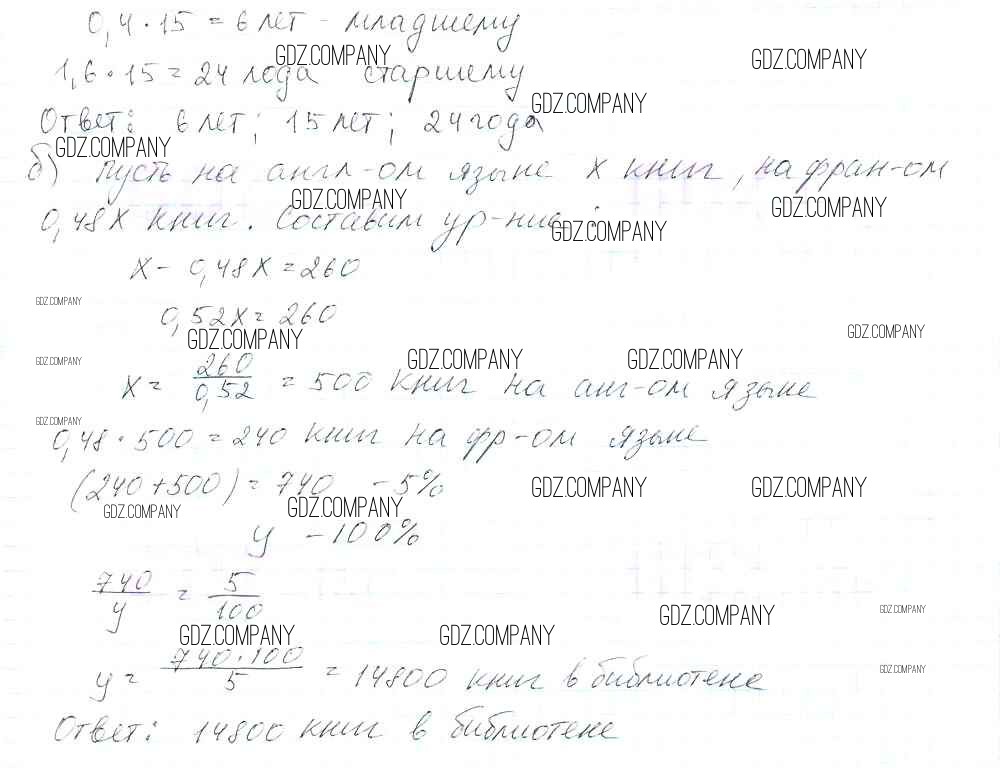 0,4 · 15 = 6 лет - младшему
GDZ.COMPANY GDZ.COMPANY
1,6 · 15 = 24 года старшему
GDZ.COMPANY
Ответ: 6 лет; 15 лет; 24 года
GDZ.COMPANY
б) Пусть на англ-ом языке х книг, на фран-ом
GDZ.COMPANY GDZ.COMPANY
0,48х книг. Составим ур-ние:
GDZ.COMPANY
х - 0,48х = 260
GDZ.COMPANY
0,52х = 260
GDZ.COMPANY GDZ.COMPANY
GDZ.COMPANY GDZ.COMPANY GDZ.COMPANY
х = 260/0,52 = 500 книг на анг-ом языке
GDZ.COMPANY
0,48 · 500 = 240 книг на фр-ом языке
(240 + 500) = 740 - 5% GDZ.COMPANY GDZ.COMPANY
GDZ.COMPANY GDZ.COMPANY
у - 100%
740/у = 5/100
GDZ.COMPANY GDZ.COMPANY
GDZ.COMPANY GDZ.COMPANY
у = 740·100/5 = 14800 книг в библиотеке
GDZ.COMPANY
Ответ: 14800 книг в библиотеке